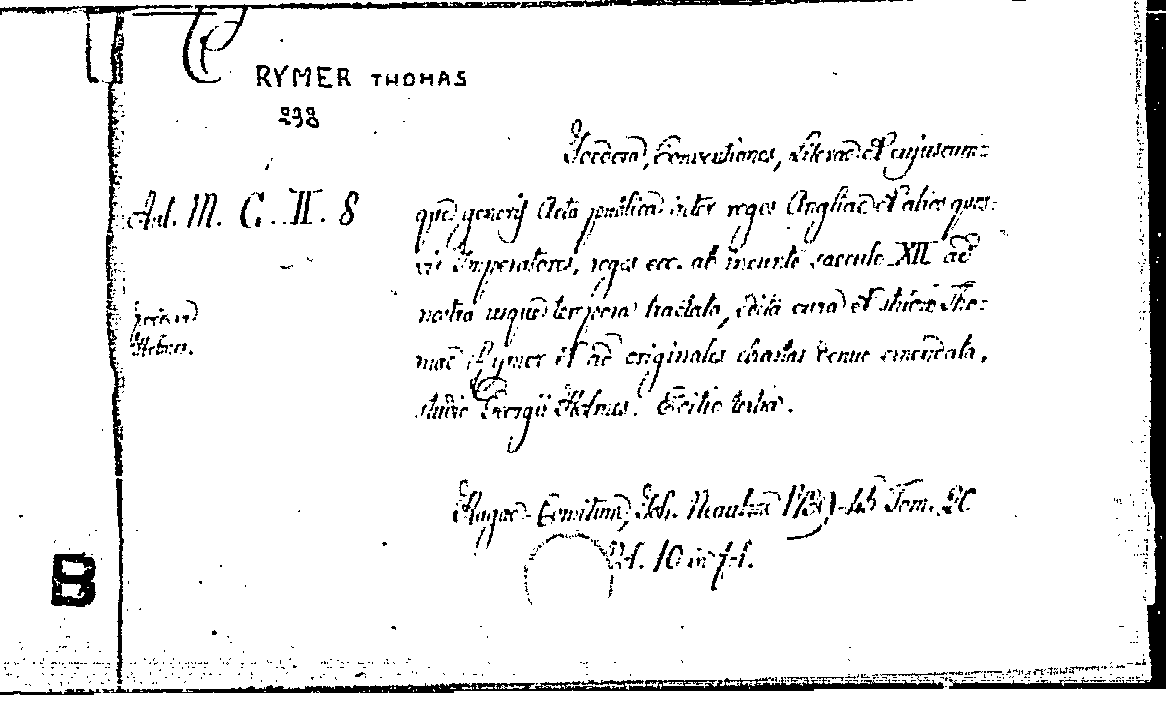 RYMER THOMAS
298
Foedera, Conventiones, Literae et cujuscum=
que generis Acta publica inter reges Angliae et alios quos=
Aul. M. C. II. 8
vis Imperatores, reges ecc. ab ineunte saeculo XII ad
nostra usque tempora tractata, edita cura et studio Tho=
mae Rymer et ad originales chartas denue emendata,
studio Georgii Holmes. Editio tertia.
Hagae-Comitum, Joh. Neaulme 1739-45 Tom. 20
Vol. 10 in f-f.
B